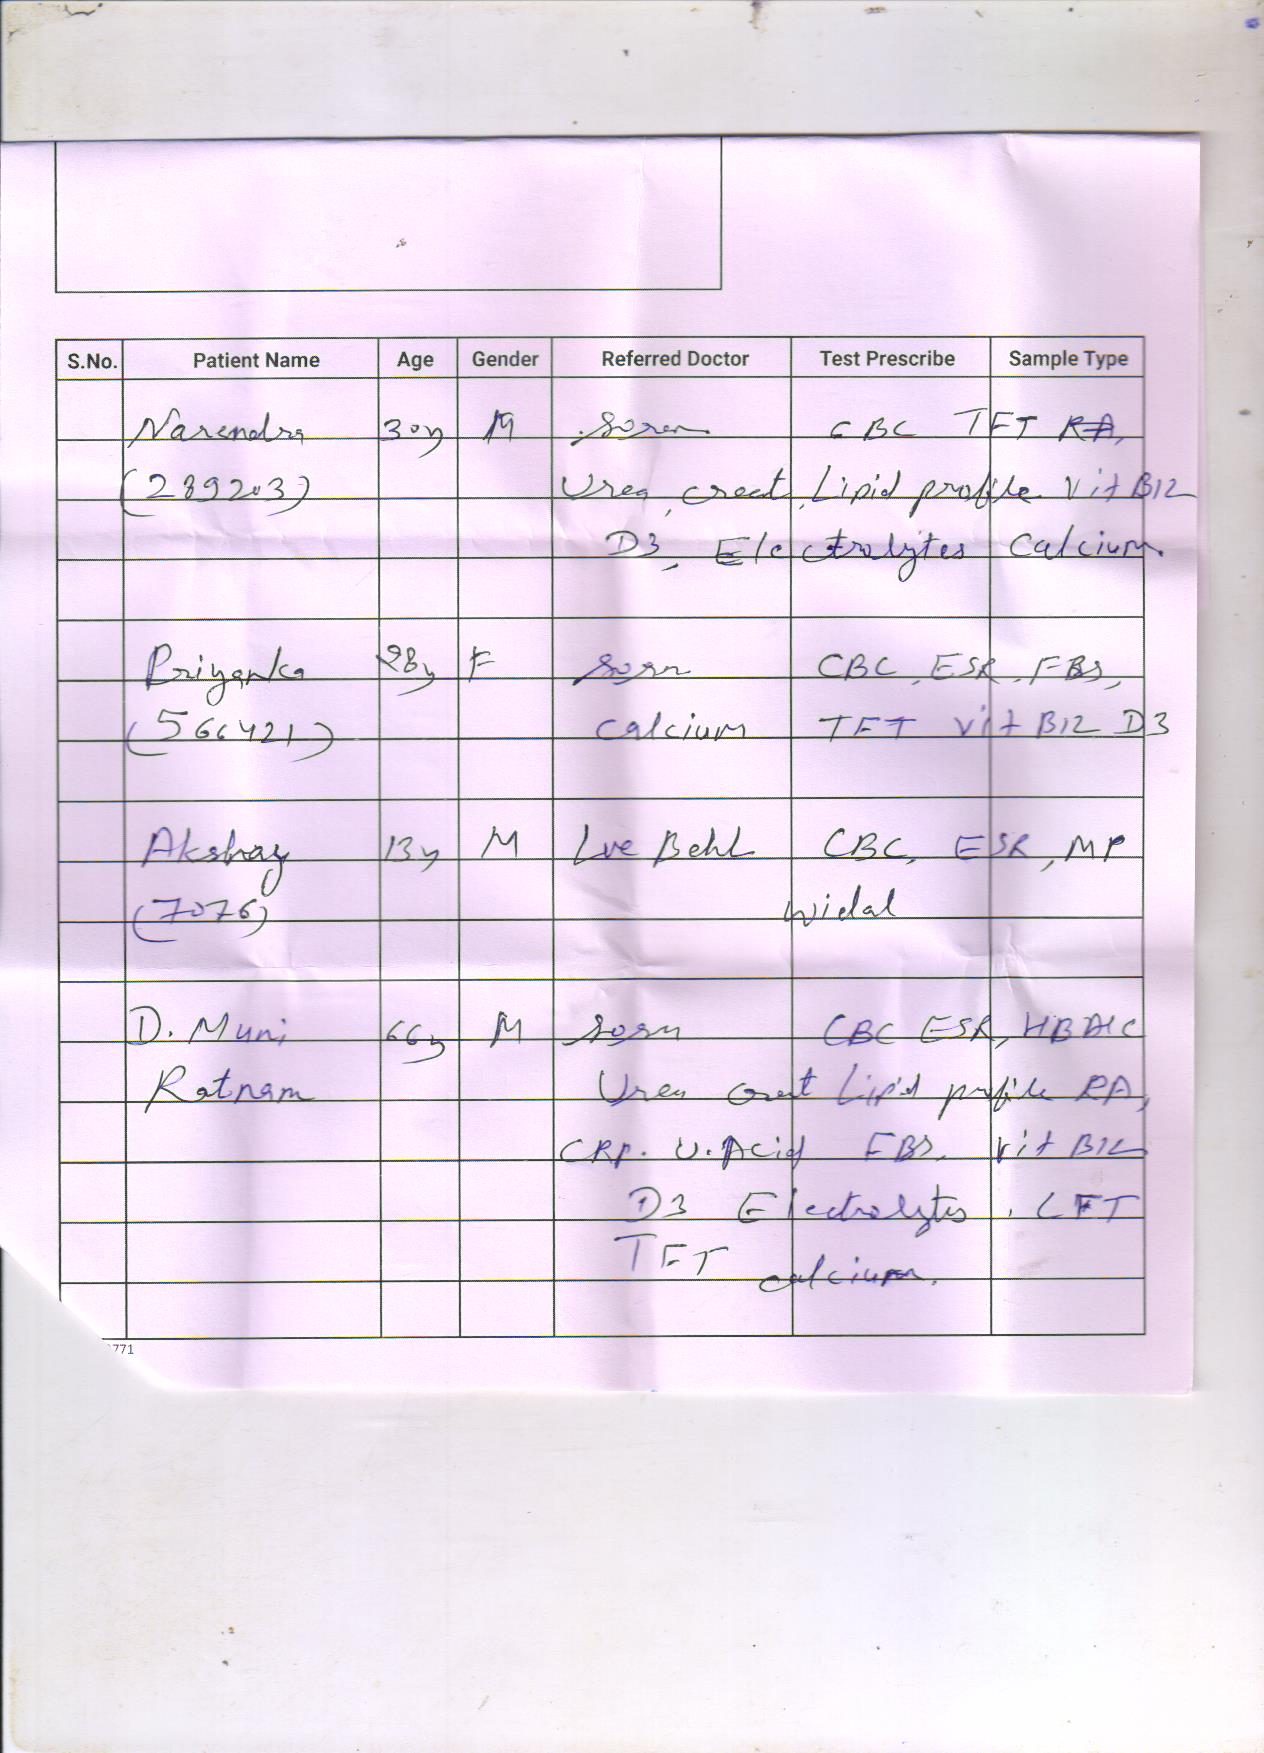 S.No. Patient Name Age Gender Referred Doctor Test Prescribe Sample Type
Narendra 30y M Soren CBC TFT RA,
(289203) Urea, creat, Lipid profile Vit B12
D3, Electrolytes Calcium.
Priyanka 28y F Soren CBC, ESR, FBS,
(566421) Calcium TFT Vit B12 D3
Akshay 13y M Lve Behl CBC, ESR, MP
(7076) Widal
D. Muni 66y M Soren CBC ESR, HBA1C
Ratnam Urea Creat Lipid profile RA,
CRP. U.Acid FBS, Vit B12
D3 Electrolytes. LFT
TFT calcium.
771